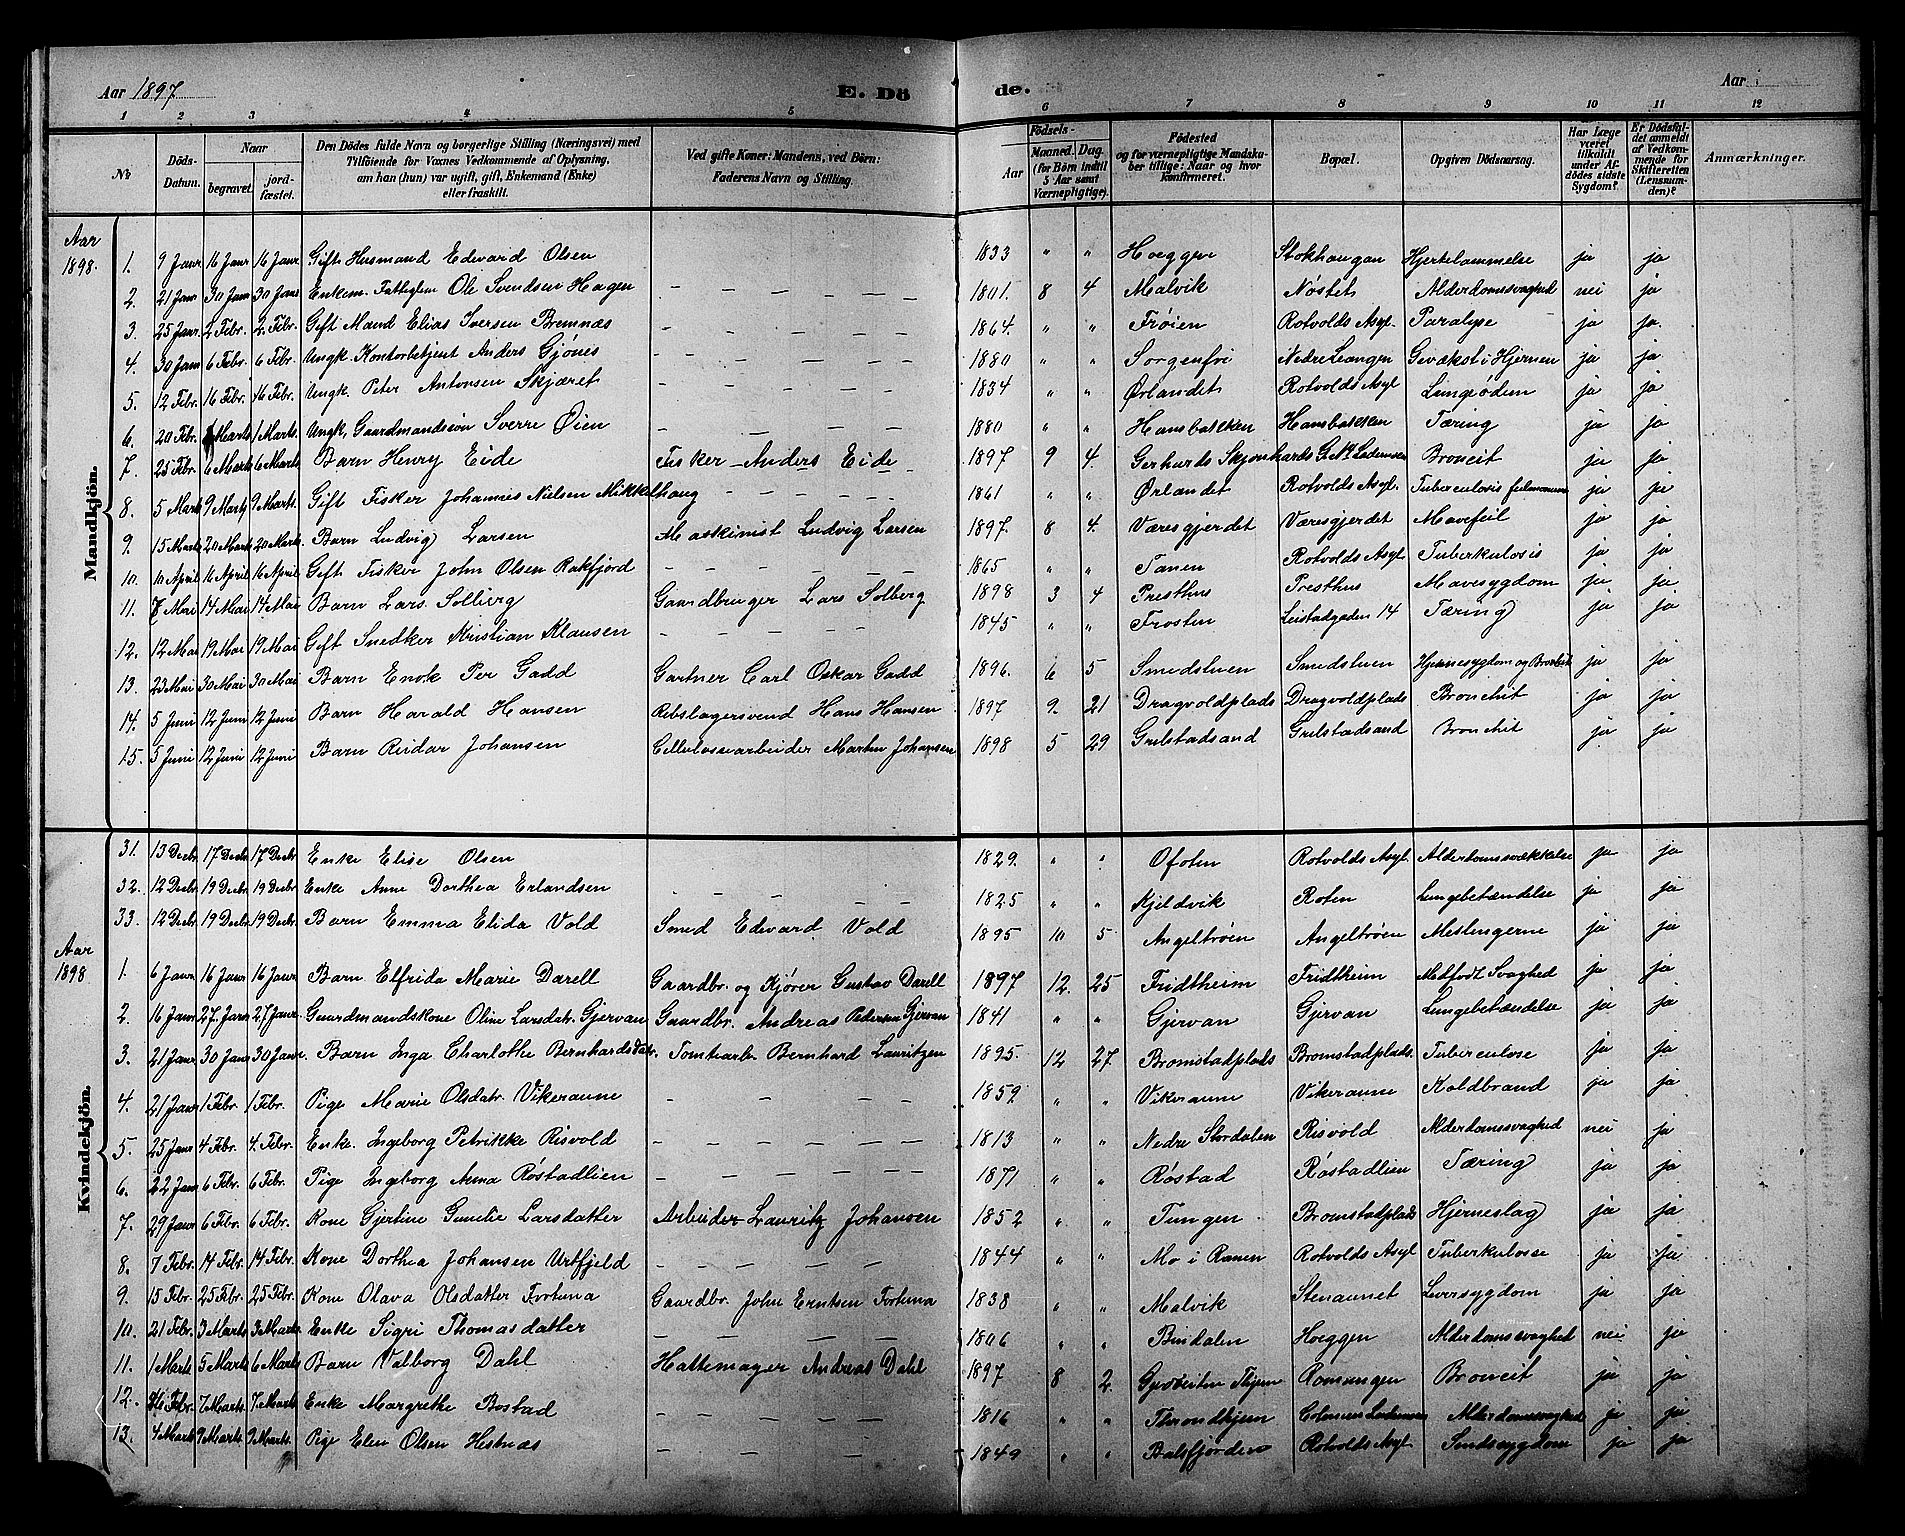 Aar 1897 E. Dö de. Aar
1 2 3 4 5 6 7 8 9 10 11 12
No
Döds-Datum.
Naar
begravet.
jord-fæstet.
Den Dödes fulde Navn og borgerlige Stilling (Næringsvei) med
Tilföiende for Voxnes Vedkommende af Oplysning,
om han (hun) var ugift, gift, Enkemand (Enke)
eller fraskilt.
Ved gifte Koner: Mandens, ved Börn:
Faderens Navn og Stilling.
Födsels-
Aar
Maaned. Dag.
(for Börn indtil 5 Aar samt Værnepligtige).
Födested
og for værnepligtige Mandska-
ber tillige: Naar og hvor
konfirmeret.
Bopæl.
Opgiven Dödsaarsag.
Har Læge været tilkaldt under Af-dödes sidste Sygdom?
Er Dödsfal-det anmeldt af Vedkom-mende for Skifteretten (Lensman-den)?
Anmærkninger.
Mandkjön.
Aar 1898.
1. 9 Janr 16 Janr 16 Janr. Gift Husmand Edvard Olsen 1833 " " Hoeggen Stokhaugan Hjertelammelse ja ja
2. 21 Janr 30 Janr 30 Janr Enkem. Fattiglem Ole Svendsen Hagen — 1801. 8 4 Malvik Nøstet Alderdomssvaghed nei ja
3. 25 Janr. 2 Febr. 2 Febr. Gift Mand Elias Iversen Bremnæs — 1864. " " Frøien Rotvolds Asyl. Paralyse ja ja
4. 30 Janr 6 Febr 6 Febr. Ungk. Kontorbetjent Anders Gjønes — 1880 " " Sorgenfri Nedre Leangen Gevækst i Hjernen ja ja
5. 12 Febr. 16 Febr. 16 Febr. Ungk Peter Antonsen Skjæret — 1834 " " Ørlandet Rotvolds Asyl Lungeødem ja ja
6. 20 Febr. 1 Marts 1 Marts. Ungk, Gaardmandssøn Sverre Øien — 1880 " " Hansbakken Hansbakken Tæring ja ja
7. 25 Febr. 6 Marts 6 Marts Barn Henry Eide Fisker Anders Eide 1897 9 4. Gerhards Skjønhards Ladem Broncit ja ja
8. 5 Marts 9 Marts 9 Marts. Gift Fisker Johannes Nielsen Mikkelhaug — 1861 " " Ørlandet Rotvolds Asyl. Tuberculosis ja ja
9. 15 Marts 20 Marts 20 Marts. Barn Ludvig Larsen Maskinist Ludvig Larsen 1897. 8 4. Væresgjerdet Væresgjerdet Mavefeil ja ja
10. 10 April 16 April 16 April Gift Fisker John Olsen Rakfjord — 1865 " " Tanen Rotvolds Asyl Tuberkulosis ja ja
11. 7 Mai 14 Mai 14 Mai Barn Lars Solberg Gaardbruger Lars Solberg 1898 3 4 Presthus Presthus Mavesygdom ja ja
12. 12 Mai 19 Mai 19 Mai Gift Snedker Kristian Klausen — 1845 " " Frosten Leistadgaden 14 Tæring ja ja
13. 23 Mai 30 Mai 30 Mai Barn Enok Per Gadd Gartner Carl Oskar Gadd 1896. 6 5 Smedstuen Smedstuen Hjernesygdom og ja ja
14. 5 Juni 12 Juni 12 Juni Barn Harald Hansen Rebslagersvend Hans Hansen 1897 9. 21 Dragvoldplads Dragvoldplads Bronchit ja ja
15. 5 Juni 12 Juni 12 Juni Barn Reidar Johansen Cellulosearbeider Martin Johansen 1898 5 29 Grilstadsand Grilstadsand Bronchit ja ja
Kvindekjön.
31. 13 Decbr 17 Decbr 17 Decbr Enke Elise Olsen 1829. " " Ofoten Rotvolds Asyl. Alderdomssvækkelse ja ja
32. 12 Decbr 19 Decbr 19 Decbr Enke Anne Dorthea Erlandsen — 1825 " " Kjeldvik Roten Lungebetændelse ja ja
33. 12 Decbr 19 Decbr. 19 Decbr. Barn Emma Elida Vold Smed Edvard Vold 1895 10 5 Angeltrøen Angeltrøen Meslingerne ja ja
Aar 1898
1. 6 Janr 16 Janr 16 Janr Barn Elfrida Marie Darell Gaardbr. og Kjører Gustav Darell 1897 12. 25 Fridtheim Fridtheim Medfødt Svaghed ja ja
2. 16 Janr 27. Janr 27 Janr Gaardmandskone Oline Larsdatr. Gjervan Gaardbr. Andreas Pedersen Gjervan 1841 " " Gjervan Gjervan Lungebetændelse ja ja
3. 21 Janr 30 Janr 30 Janr Barn Inga Charlotte Bernhardsdatr. Tomtearb. Bernhard Lauritzen 1895. 12 27 Bromstadplads Bromstadplads. Tuberculose ja ja
4. 21 Janr 1 Febr. 1 Febr. Pige Marie Olsdatr. Vikeraune — 1859 " " Vikeraune Vikeraune Koldbrand ja ja
5. 25 Janr 4 Febr. 4 Febr. Enke. Ingeborg Petrikke Risvold — 1813 " " Nedre Stordalen Risvold Alderdomssvaghed nei ja
6. 22 Janr 6 Febr. 6 Febr. Pige Ingeborg Anna Røstadlien — 1871 " " Røstad Røstadlien Tæring ja ja
7. 29 Janr 6 Febr. 6 Febr. Kone Gjertine Gunelie Larsdatter Arbeider Lauritz Johansen 1852 " " Tungen Bromstadplads Hjerneslag ja ja
8. 7 Febr. 14 Febr. 14 Febr. Kone Dorthea Johansen Urtfjeld — 1844 " " Mo i Ranen Rotvolds Asyl Tuberkulosse ja ja
9. 15 Febr. 25 Febr. 25 Febr. Kone Olava Olsdatter Fortuna Gaardbr. John Erntsen Fortuna 1838 " " Malvik Stenaunet Leversygdom ja ja
10. 21 Febr. 3 Marts 3 Marts. Enke Sigri Thomasdatter — 1806 " " Bindalen Hoeggen Alderdomssvaghed nei ja
11. 1 Marts 5 Marts 6 Marts Barn Valborg Dahl Hattemager Andreas Dahl 1897 8 2. Romungen Broncit ja ja
12. Febr. 7 Marts. 7 Marts Enke Margrethe Bostad — 1816 " " Throndhjem Alderdomssvaghed ja ja
13. 4 Marts 9 Marts. 9 Marts. Pige Elen Olsen Hestnæs — 1849 " " Balsfjorden Rotvolds Asyl Sindssygdom ja ja